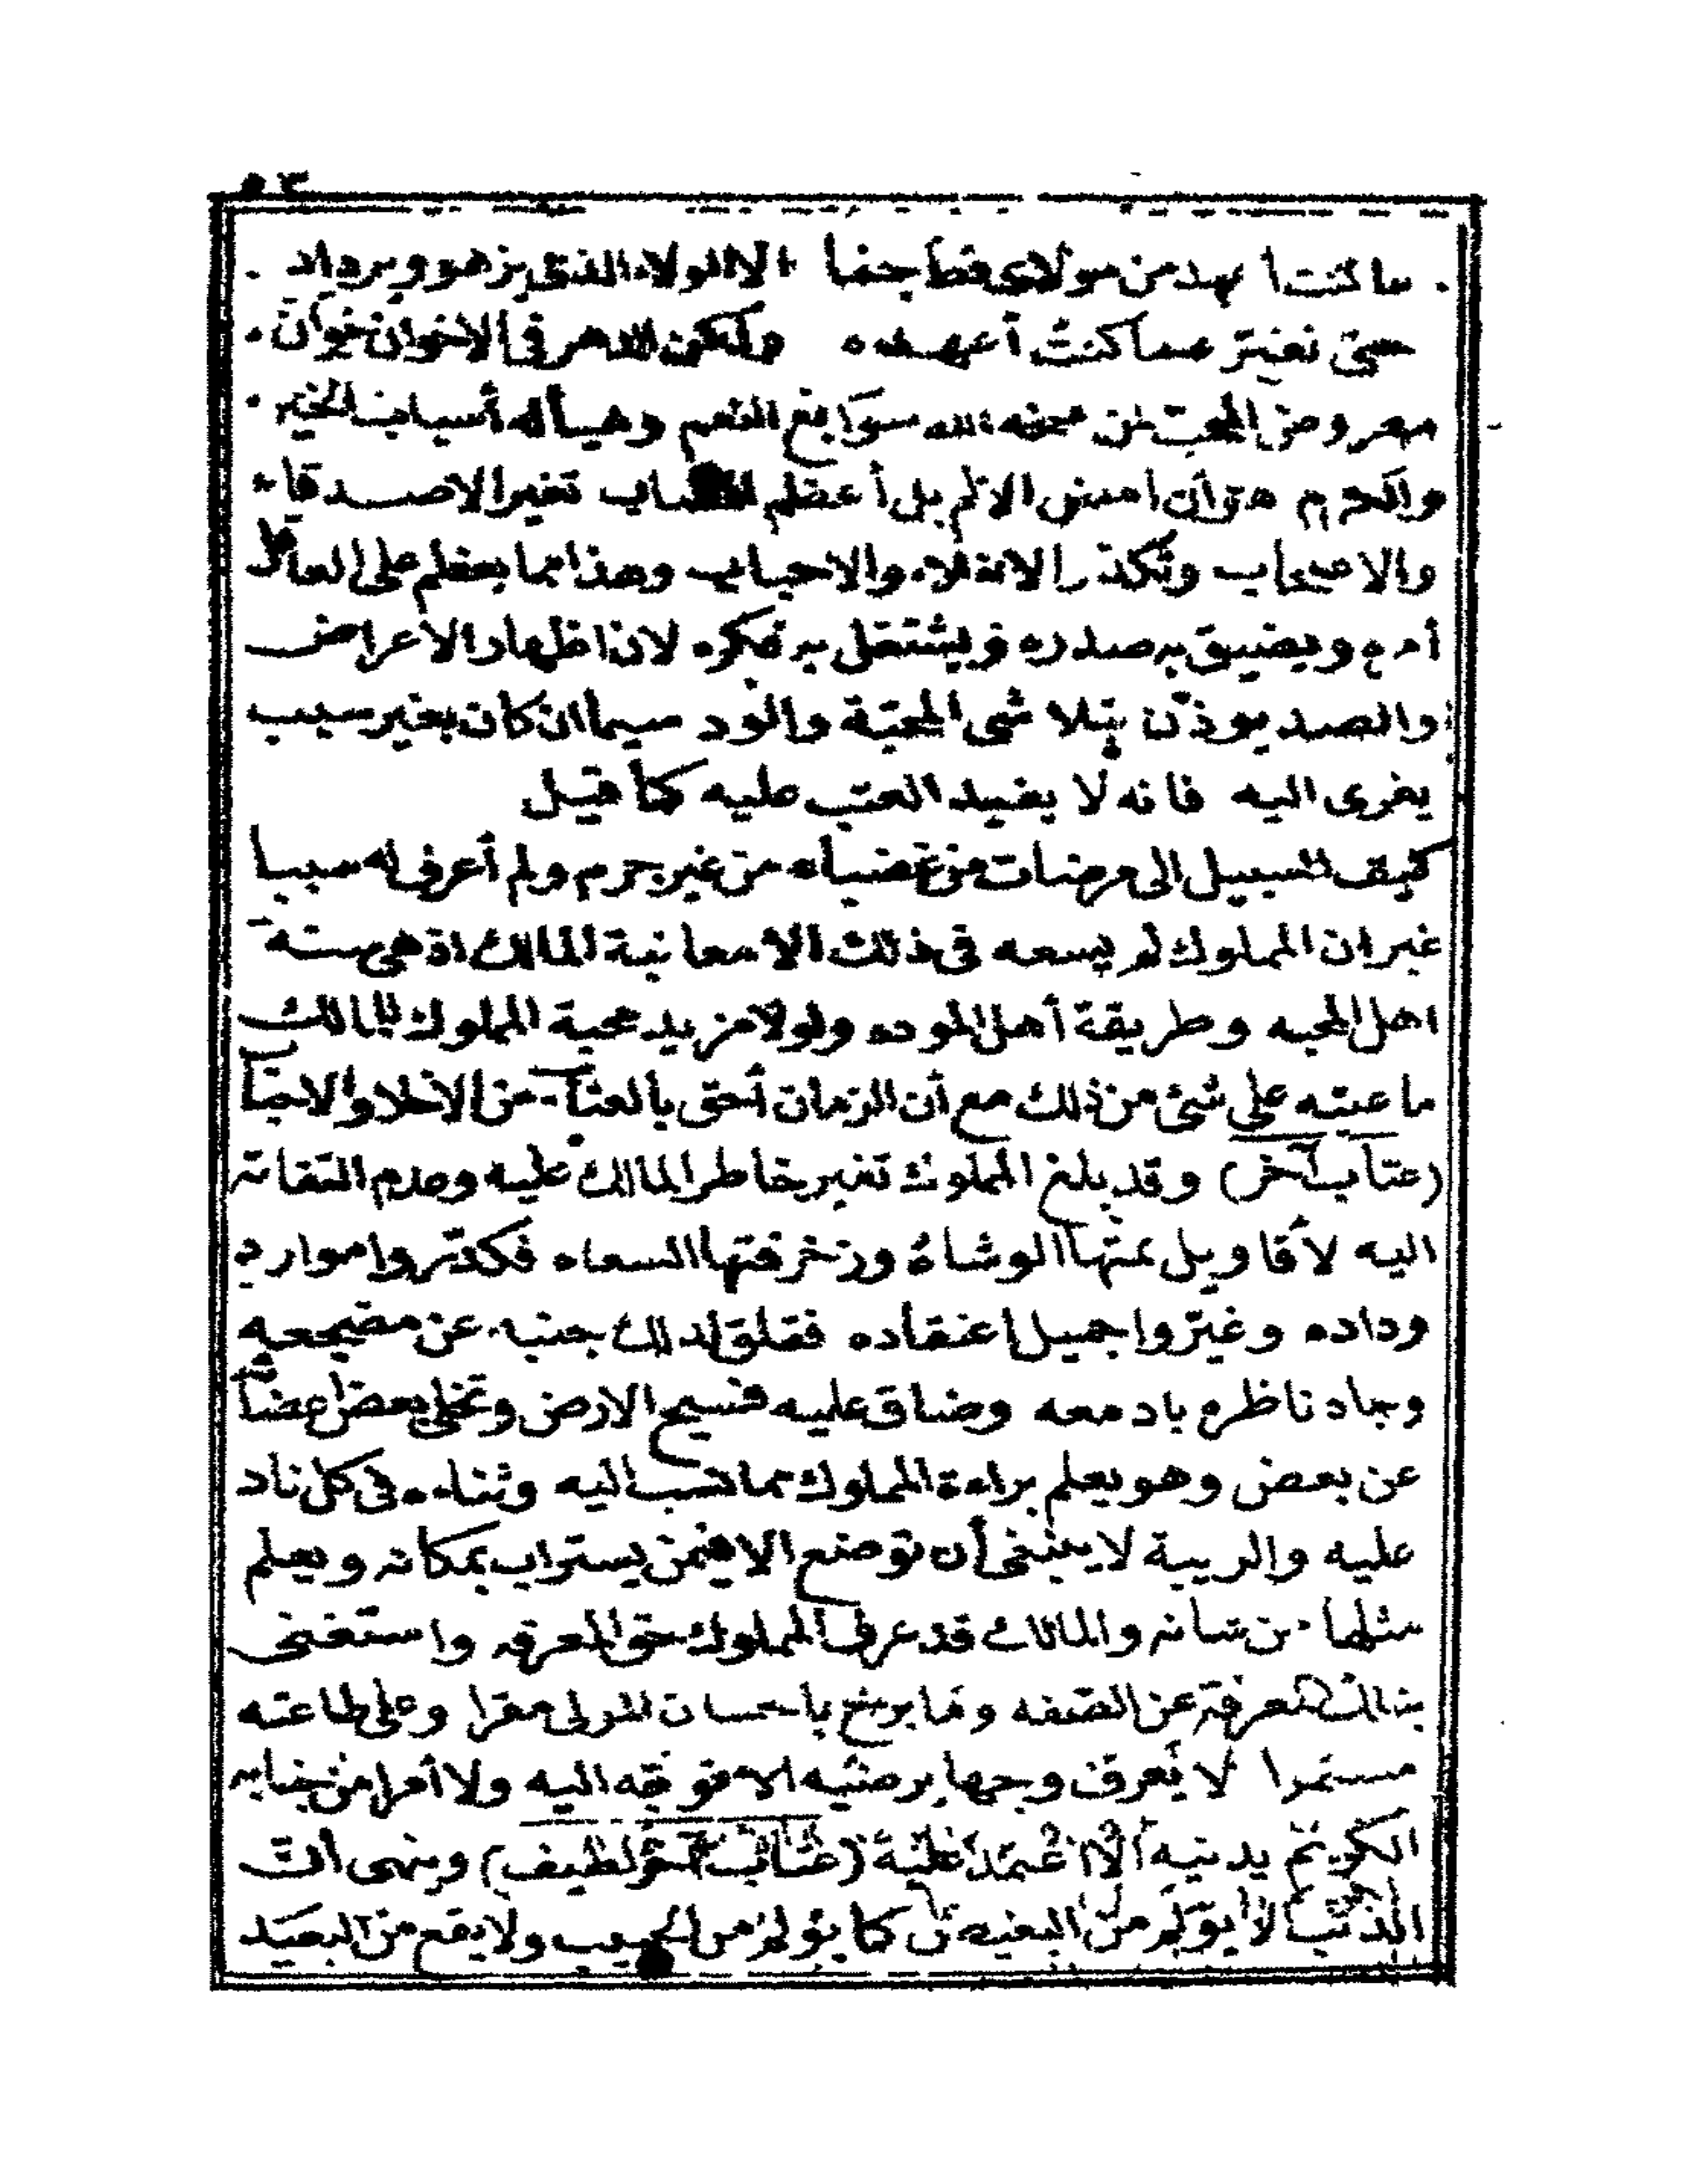 ٥٣
ما كنت أعهد من مولاى قط جفا الا الولاء الذى يزهو ويزداد
حتى تغيّر عما كنت أعهده ولكن الدهر فى الاخوان خوّان
معروض المحب لمن منحه الله سوابغ النعم وهيأ له أسباب الخير
والكرم هو أن امس الالم بل أعظم تغير الاصدقاء
والاصحاب وتكدّر الاخلاء والاحباب وهذا مما يعظم على العاقل
أمره ويضيق به صدره ويشتغل به فكره لان اظهار الاعراض
والصد يوذن بتلاشى المحبّة والود سيما ان كان بغير سبب
يغرى اليه فانه لا يفيد العتب عليه كما قيل
كيف السبيل الى مرضات من غضبا من غير جرم ولم أعرف له سببا
غير ان المملوك لم يسعه فى ذلك الا معاتبة المالك اذ هى سنة
اهل المحبه وطريقة أهل الموده ولولا مزيد محبة المملوك للمالك
ما عتبه على شئ من ذلك مع أن الزمان أحق بالعتاب من الاخلا والاصحاب
(عتاب آخر) وقد بلغ المملوك تغير خاطر المالك عليه وعدم التفاته
اليه لأقاويل نمتها الوشاة وزخرفتها السعاه فكدّروا موارد
وداده وغيّروا جميل اعتقاده فقلق لذلك جنبه عن مضجعه
وجاد ناظره بادمعه وضاق عليه فسيح الارض وتخلى بعض اعضائه
عن بعض وهو يعلم براءة المملوك مما نسب اليه وثناءه فى كل ناد
عليه والريبة لا ينبغى أن توضع الا فيمن يستراب بمكانه ويعلم
مثلها من شانه والمالك قد عرف المملوك حق المعرفه واستغنى
بتلك المعرفة عن الصفه وما برح باحسان المولى مقرا وعلى طاعته
مستمرا لا يعرف وجها يرضيه الا فوّقه اليه ولا أمرا من جنابه
الكريم يدنيه الا اعتمد عليه (عتاب آخر لطيف) وينهى أنّ
الذنب لا يؤلم من البغيض كما يؤلم من الحبيب ولا يقع من البعيد